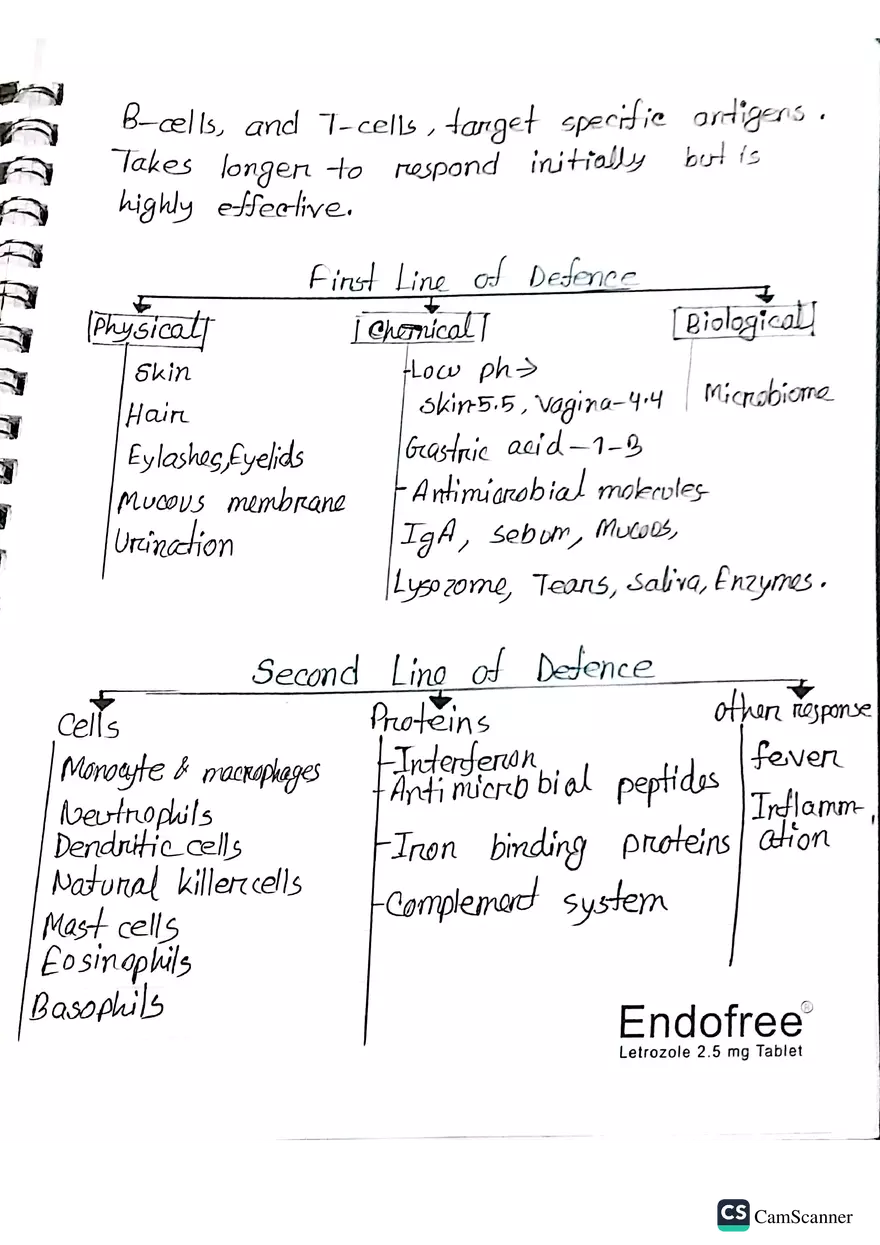 B-cells, and T-cells, target specific antigens.
Takes longer to respond initially but is
highly effective.
First Line of Defence
Physical
Skin
Hair
Eylashes, Eyelids
Mucous membrane
Urination
Chemical
Low ph →
Skin-5.5, Vagina-4.4
Gastric acid-1-3
- Antimicrobial molecules
IgA, Sebum, Mucous,
Lysozome, Tears, Saliva, Enzymes.
Biological
Microbiome
Second Line of Defence
Cells
Monocyte & macrophages
Neutrophils
Dendritic cells
Natural killer cells
Mast cells
Eosinophils
Basophils
Proteins
- Interferon
- Antimicrobial peptides
- Iron binding proteins
- Complement system
other response
fever
Inflamm-
ation
Endofree®
Letrozole 2.5 mg Tablet
CS CamScanner